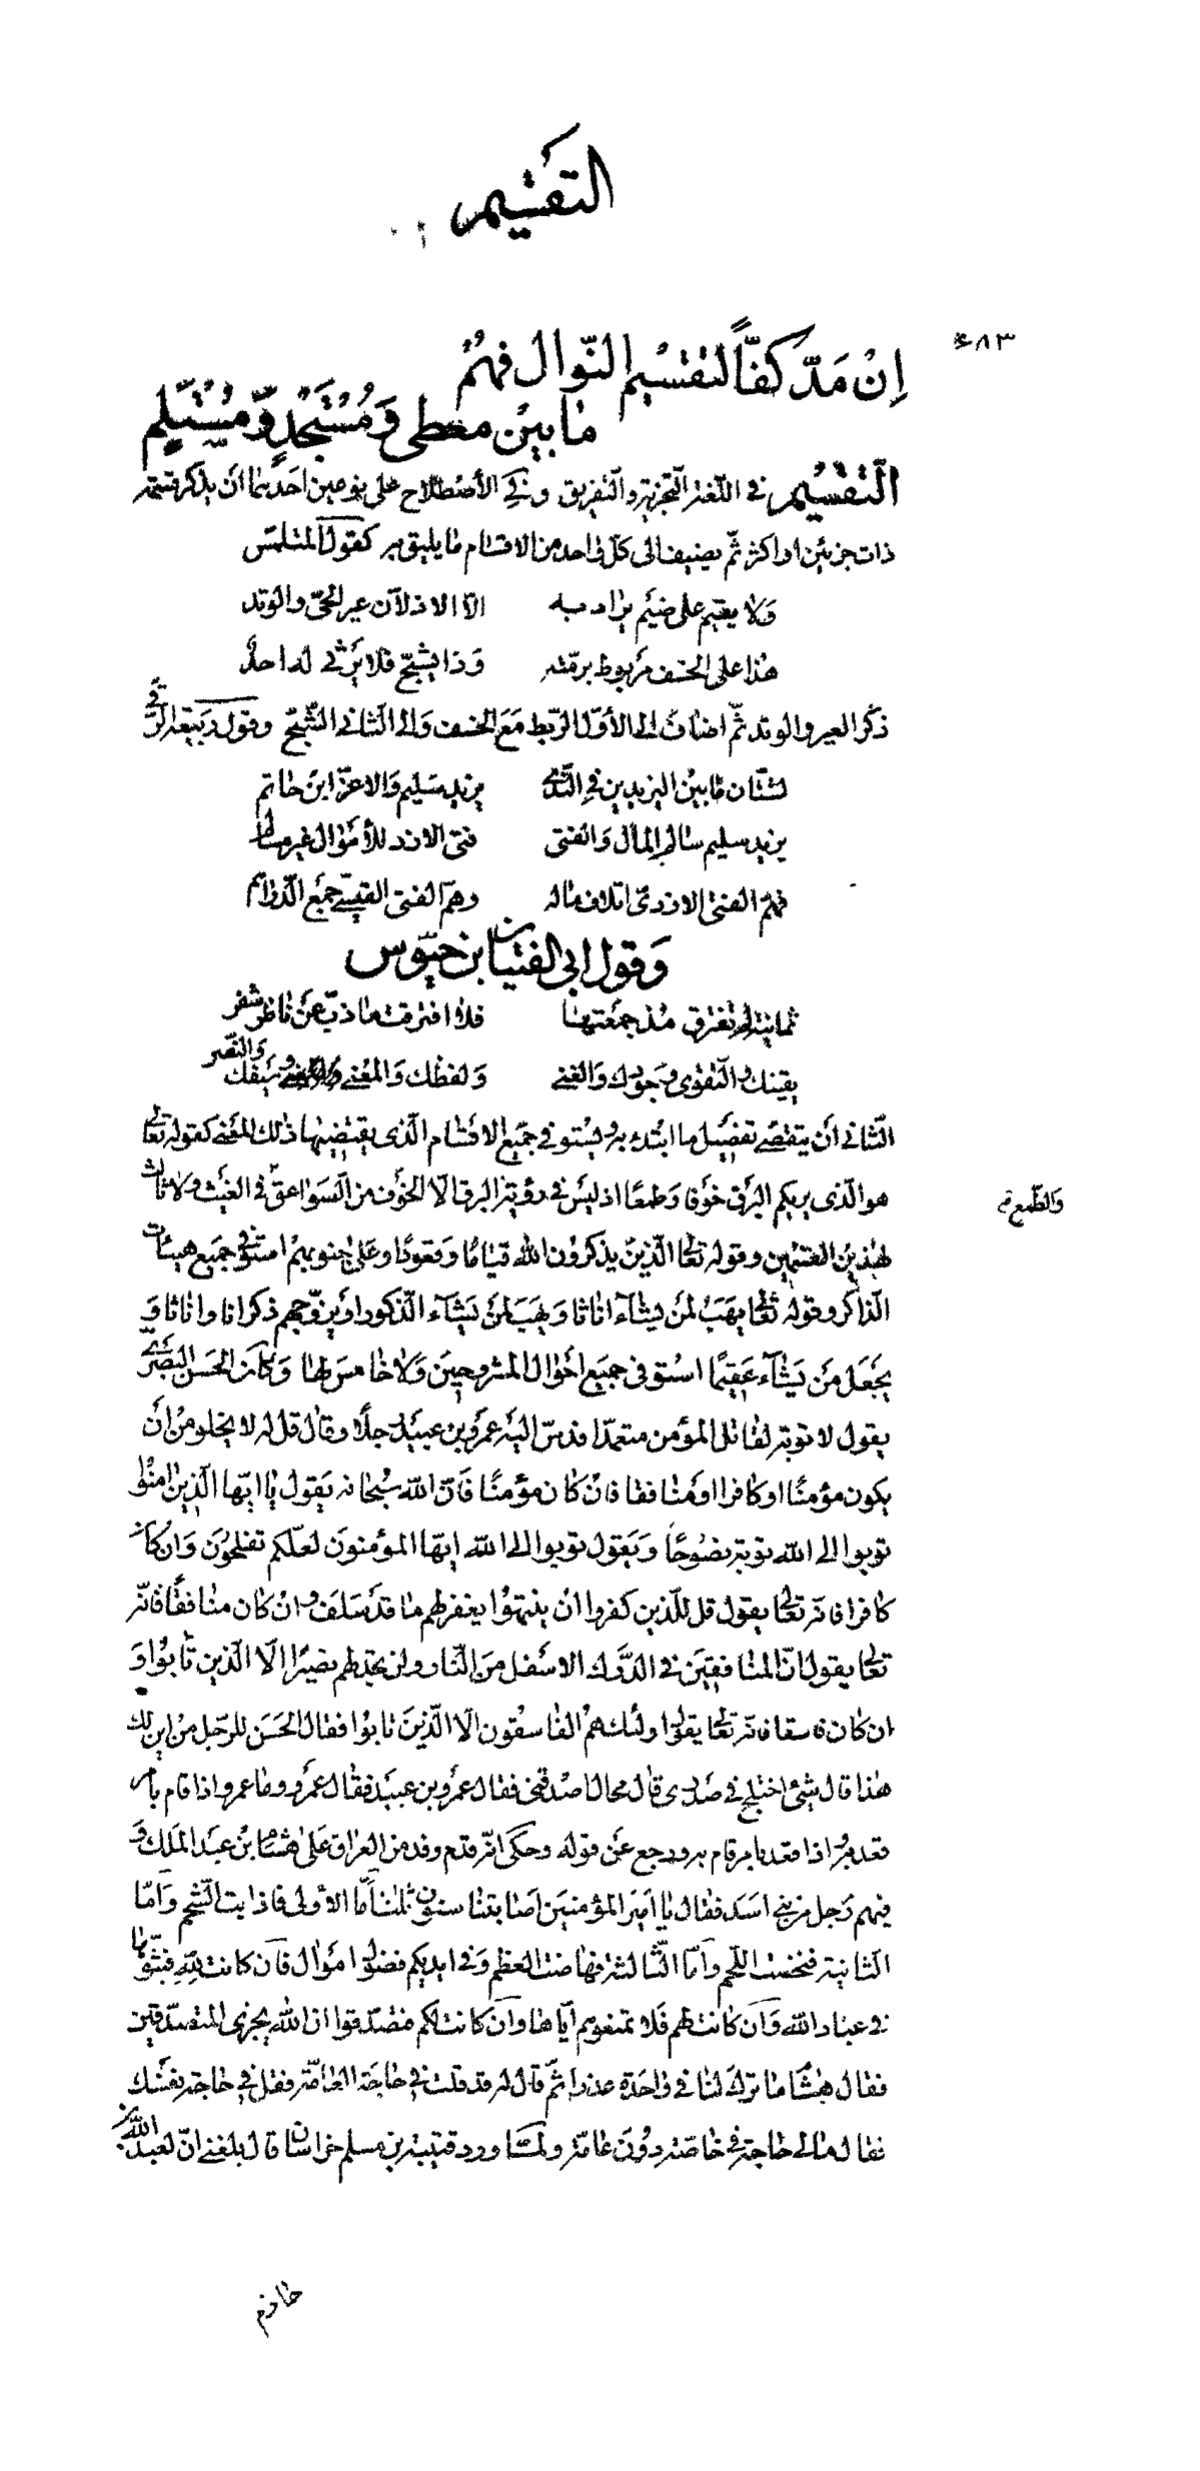 التقسيم
۶۸۳
اِنْ مَدَّ كَفًّا لتقسيم النّوال فهُمْ
مٰا بينْ معطى وَمُسْتَجْدٍ وَّمُسْتَلِمِ
التّقسيم في اللّغة التّجزية والتّفريق وفي الأصطلاح على نوعين احدهما أن يذكر قسمة
ذات جزئين او اكثر ثمّ يضيف الى كلّ واحد من الاقسام ما يليق به كقول المتلمّس
وَلا يقيم على ضيم يراد به الّا الاذلّان عير الحيّ والوتد
هٰذا على الخسف مربوط برمّته وَذا يشجّ فلا يرثى له احد
ذكر العير والوتد ثمّ اضاف الى الأوّل الرّبط مَعَ الخسف وَالى الثّانى الشّجّ وقول ربيعة الرّقّى
لشتّان مٰا بين اليزيدين في النّدى يزيد سليم وَالاغرّ ابن حاتم
يزيد سليم سالم المال وَالفتى فتى الازد للأموال غير مسالم
فهمّ الفتى الازدىّ اتلاف ماله وهمّ الفتى القيسىّ جمع الدّراهم
وَقول ابى الفتيان بن حيّوس
ثمانية لم تفترق مُذ جمعتهٰا فلا افترقت مٰا ذبّ عن ناظر شفر
يقينك والتّقوى وجودك والغنى وَلفظك وَالمعنى وسيفك وَالنّصر
الثّانى أن يتقصّى تفصيل ما ابتدء به ويستوفى جميع الاقسام الّذى يقتضيهٰا ذلك المعنى كقوله تعالى
هو الّذى يريكم البرق خوفا وَطمعًا اذ ليس في رؤية البرق الّا الخوف من الصّواعق في الغيث ولا ثالث
وَالطّمع
لهٰذين القسمين وقوله تعالى الّذين يذكرون الله قيامًا وَقعودًا وعلى جنوبهم استوفى جميع هيئات
الذاكر وقوله تعالى يهَبُ لمن يشآء اناثا وَيهب لمن يشآء الذّكور او يزوّجهم ذكرانا واناثا وَ
يجعل من يَشآء عقيمًا استوفى جميع احوال المتزوجين وَلا خامس لهٰا وَكان الحسن البصرىّ
يقول لا توبة لقاتل المؤمن متعمدا فدسّ اليه عمرو بن عبيد رجلًا وقال قل له لا يخلو من أن
يكون مؤمنًا او كافرا او منافقا فان كان مؤمنًا فانّ الله سبحانه يقول يا ايّها الّذين امنوا
توبوا الى الله توبة نصوحًا وَيقول توبوا الى الله ايّها المؤمنون لعلّكم تفلحون وَان كان
كافرا فانه تعالى يقول قل للّذين كفروا ان ينتهوا يغفر لهم ما قد سَلف وان كان منافقًا فانّه
تعالى يقول انّ المنافقين في الدّرك الاسفل من النّار ولن تجد لهم نصيرًا الّا الّذين تابوا وَ
ان كان فاسقا فانّه تعالى يقول اولئك همُ الفاسقون الّا الّذين تابوا فقال الحَسَن للرّجل من اين لك
هٰذا قال شئ اختلج في صدرى قال محال اصدقنى فقال عمرو بن عبيد فقال عمرو ومٰا عمرو اذا قام بأمر
قعد به واذا قعد بامر قام به ورجع عن قوله وحكى انّه قدم وفد من العراق على هشام بن عبد الملك وَ
فيهم رجل من بنى اسَد فقال يا امير المؤمنين اصابتنا سنون ثلث امّا الاولى فاذابت الشّحم وَامّا
الثانية فنخضت اللّحم وامّا الثالثة فهاضت العظم وَفي ايديكم فضول اموال فان كانت لله فبثّوها
في عباد الله وَان كانت لهم فلا تمنعوهم ايّاها وَان كانت لكم فتصدّقوا ان الله يجزى المتصدّقين
فقال هشام ما ترك لنا في واحدة عذرا ثمّ قال له قد قلت في حاجة العامّة فقل في حاجة نفسك
فقال مٰالى حاجة في خاصّة دون عامّة ولمّا ورد قتيبة بن مسلم خراسان قال بلغنى انّ لعبد الله بن
خازم